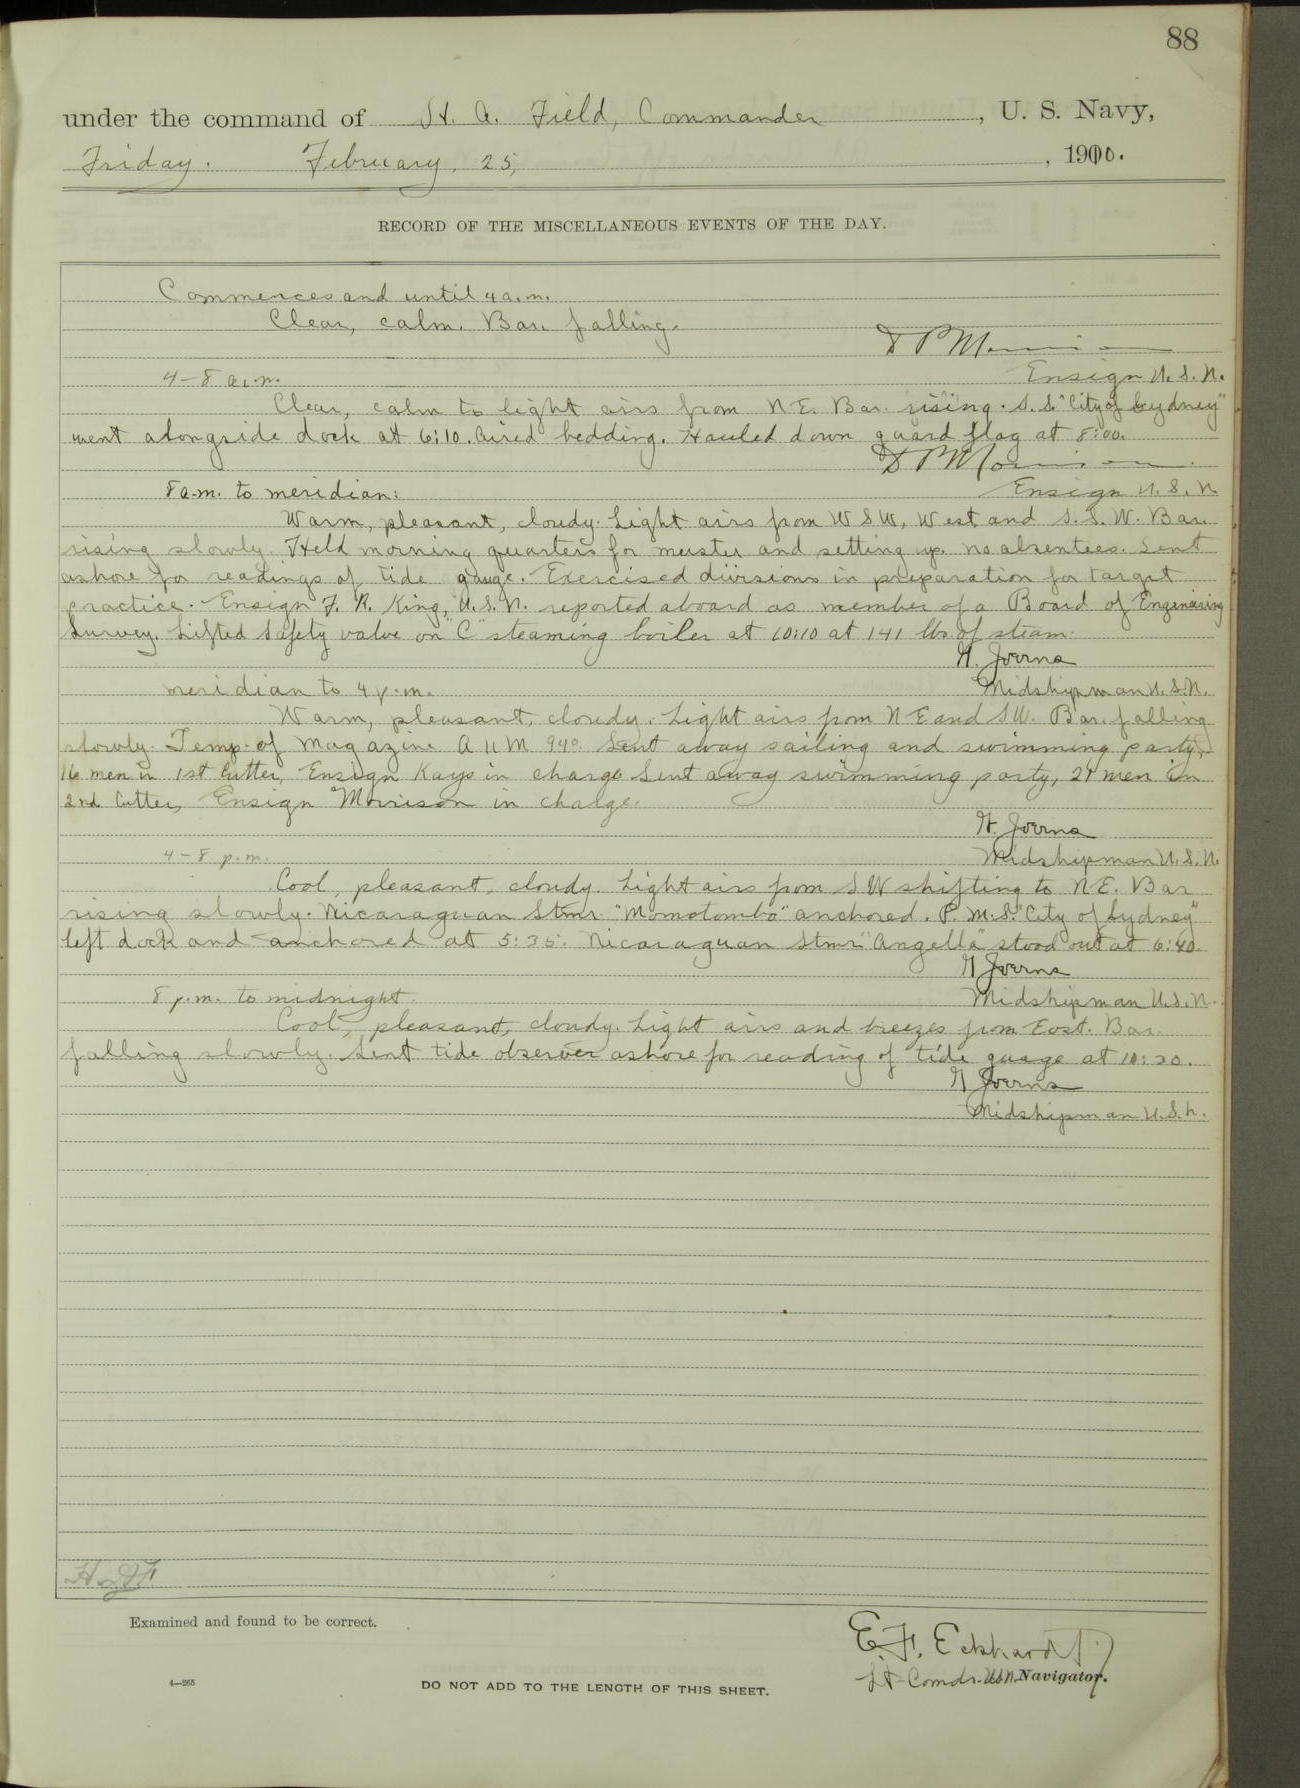 88
under the command of H. A. Field, Commander, U. S. Navy,
Friday. February, 25, 1910.
RECORD OF THE MISCELLANEOUS EVENTS OF THE DAY.
Commences and until 4 a.m.
Clear, calm. Bar. falling.
D P Morrison
Ensign U.S.N.
4-8 a.m.
Clear, calm to light airs from N E. Bar. rising. S.S. "City of Sydney"
went alongside dock at 6:10. Aired bedding. Hauled down guard flag at 8:00.
D P Morrison
Ensign U.S.N
8 a.m. to meridian:
Warm, pleasant, cloudy. Light airs from W S W, West and S.S.W. Bar.
rising slowly. Held morning quarters for muster and setting up. no absentees. Sent
ashore for readings of tide gauge. Exercised divisions in preparation for target
practice. Ensign F. R. King, U.S.N. reported aboard as member of a Board of Engineering
Survey. Lifted safety valve on "C" steaming boiler at 10:10 at 141 lbs. of steam.
H. Joerns
Midshipman U.S.N.
meridian to 4 p.m.
Warm, pleasant, cloudy. Light airs from N E and S W. Bar. falling
slowly. Temp. of magazine A 11 M 94°. Sent away sailing and swimming party,
16 men in 1st Cutter, Ensign Kays in charge. Sent away swimming party, 21 men in
2nd Cutter, Ensign Morrison in charge.
H. Joerns
Midshipman U.S.N.
4-8 p.m.
Cool, pleasant, cloudy. Light airs from S W shifting to N E. Bar
rising slowly. Nicaraguan Stmr "Momotombo" anchored. P. M. S. "City of Sydney"
left dock and anchored at 5:35. Nicaraguan Stmr "Angella" stood out at 6:40.
H Joerns
Midshipman U.S.N.
8 p.m. to midnight.
Cool, pleasant, cloudy. Light airs and breezes from East. Bar.
falling slowly. Sent tide observer ashore for reading of tide guage at 10:20.
H Joerns
Midshipman U.S.N.
Examined and found to be correct.
E. F. Eckhardt
Lt-Comdr. U.S.N. Navigator.
4—265
DO NOT ADD TO THE LENGTH OF THIS SHEET.